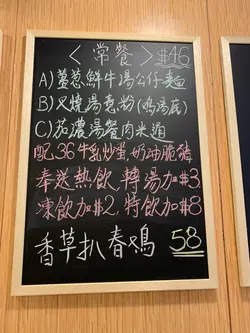 ＜常餐＞$46
A)薑葱鮮牛湯公仔麵
B)叉燒湯意粉(鳴湯底)
C)茄濃湯餐肉米通
配36牛乳炒蛋,奶油脆豬
奉送熱飲,轉湯加$3.
凍飲加$2,特飲加$8
香草扒春鳮 58